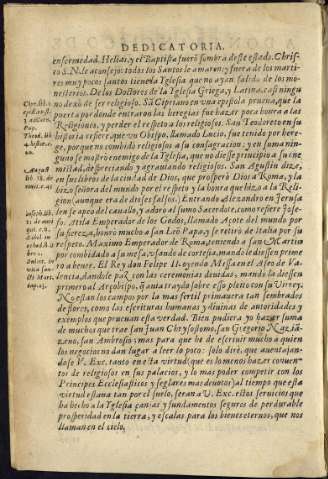 DEDICATORIA.
enfermedad. Helias, y el Baptista fuerõ sombra deste estado. Chris-
to S.N. le aconsejo: todos los Santos le amaron: y fuera de los marti-
res muy pocos santos tiene la Yglesia que no ayan salido de los mo-
nesterios. De los Doctores de la Yglesia Griega, y Latina, casi ningu
no dexò de ser religioso. Sã Cipriano en una epistola prueua, que la
puerta por donde entraron las heregias fue hazer poca honra a los
Religiosos, y perder el respeto a los religiosos. San Teodoreto en su
historia refiere que un Obispo, llamado Lucio, fue tenido por here-
ge, porque no combidò religiosos a su consagracion: y en suma nin-
guno se mostro enemigo de la Yglesia, que no diesse principio a su ene
mistad, despreciando y agrauiando religiosos. San Agustin dize,
en sus libros de la ciudad de Dios, que prosperò Dios a Roma, y la
hizo señora del mundo por el respeto y la honra que hizo a la Reli-
gion (aunque era de dioses falsos.) Entrando Alexandro en Jerusa
len se apeo del cauallo, y adorò al sumo Sacerdote, como refiere Jose-
fo. Atila Emperador de los Godos, llamado Açote del mundo por
su fiereza, honrò mucho a san Leõ Papa, y se retirò de Italia por su
respeto. Maximo Emperador de Roma, teniendo a san Martin
por combidado a su mesa, usando de cortesia, mandò le diessen prime
ro a beuer. El Rey don Felipe II. oyendo Missa en el Aseo de Va-
lencia, dandole paz con las ceremonias deuidas, mandò la diessen
primero al Arçobispo,
No estan los campos por la mas fertil primauera tan sembrados
de flores, como las escrituras humanas y diuinas de autoridades y
exemplos que prueuan esta verdad. Bien pudiera yo hazer suma
de muchos que trae san Juan Chrysostomo, san Gregorio Naziã-
zeno, san Ambrosio: mas para que he de escriuir mucho a quien
los negocios no dan lugar a leer lo poco: solo dirè, que auentajan-
dose V. Exc. tanto en esta virtud, que es lo menos hazer conuen-
tos de religiosos en sus palacios, y lo mas poder competir con los
Principes Ecclesiasticos y seglares mas deuotos: al tiempo que esta
virtud estaua tan por el suelo, seran a V. Exc. estos seruicios que
ha hecho a la Yglesia çanjas y fundamentos seguros de perdurable
prosperidad en la tierra, y escalas para los bienes eternos, que nos
llaman en el cielo.